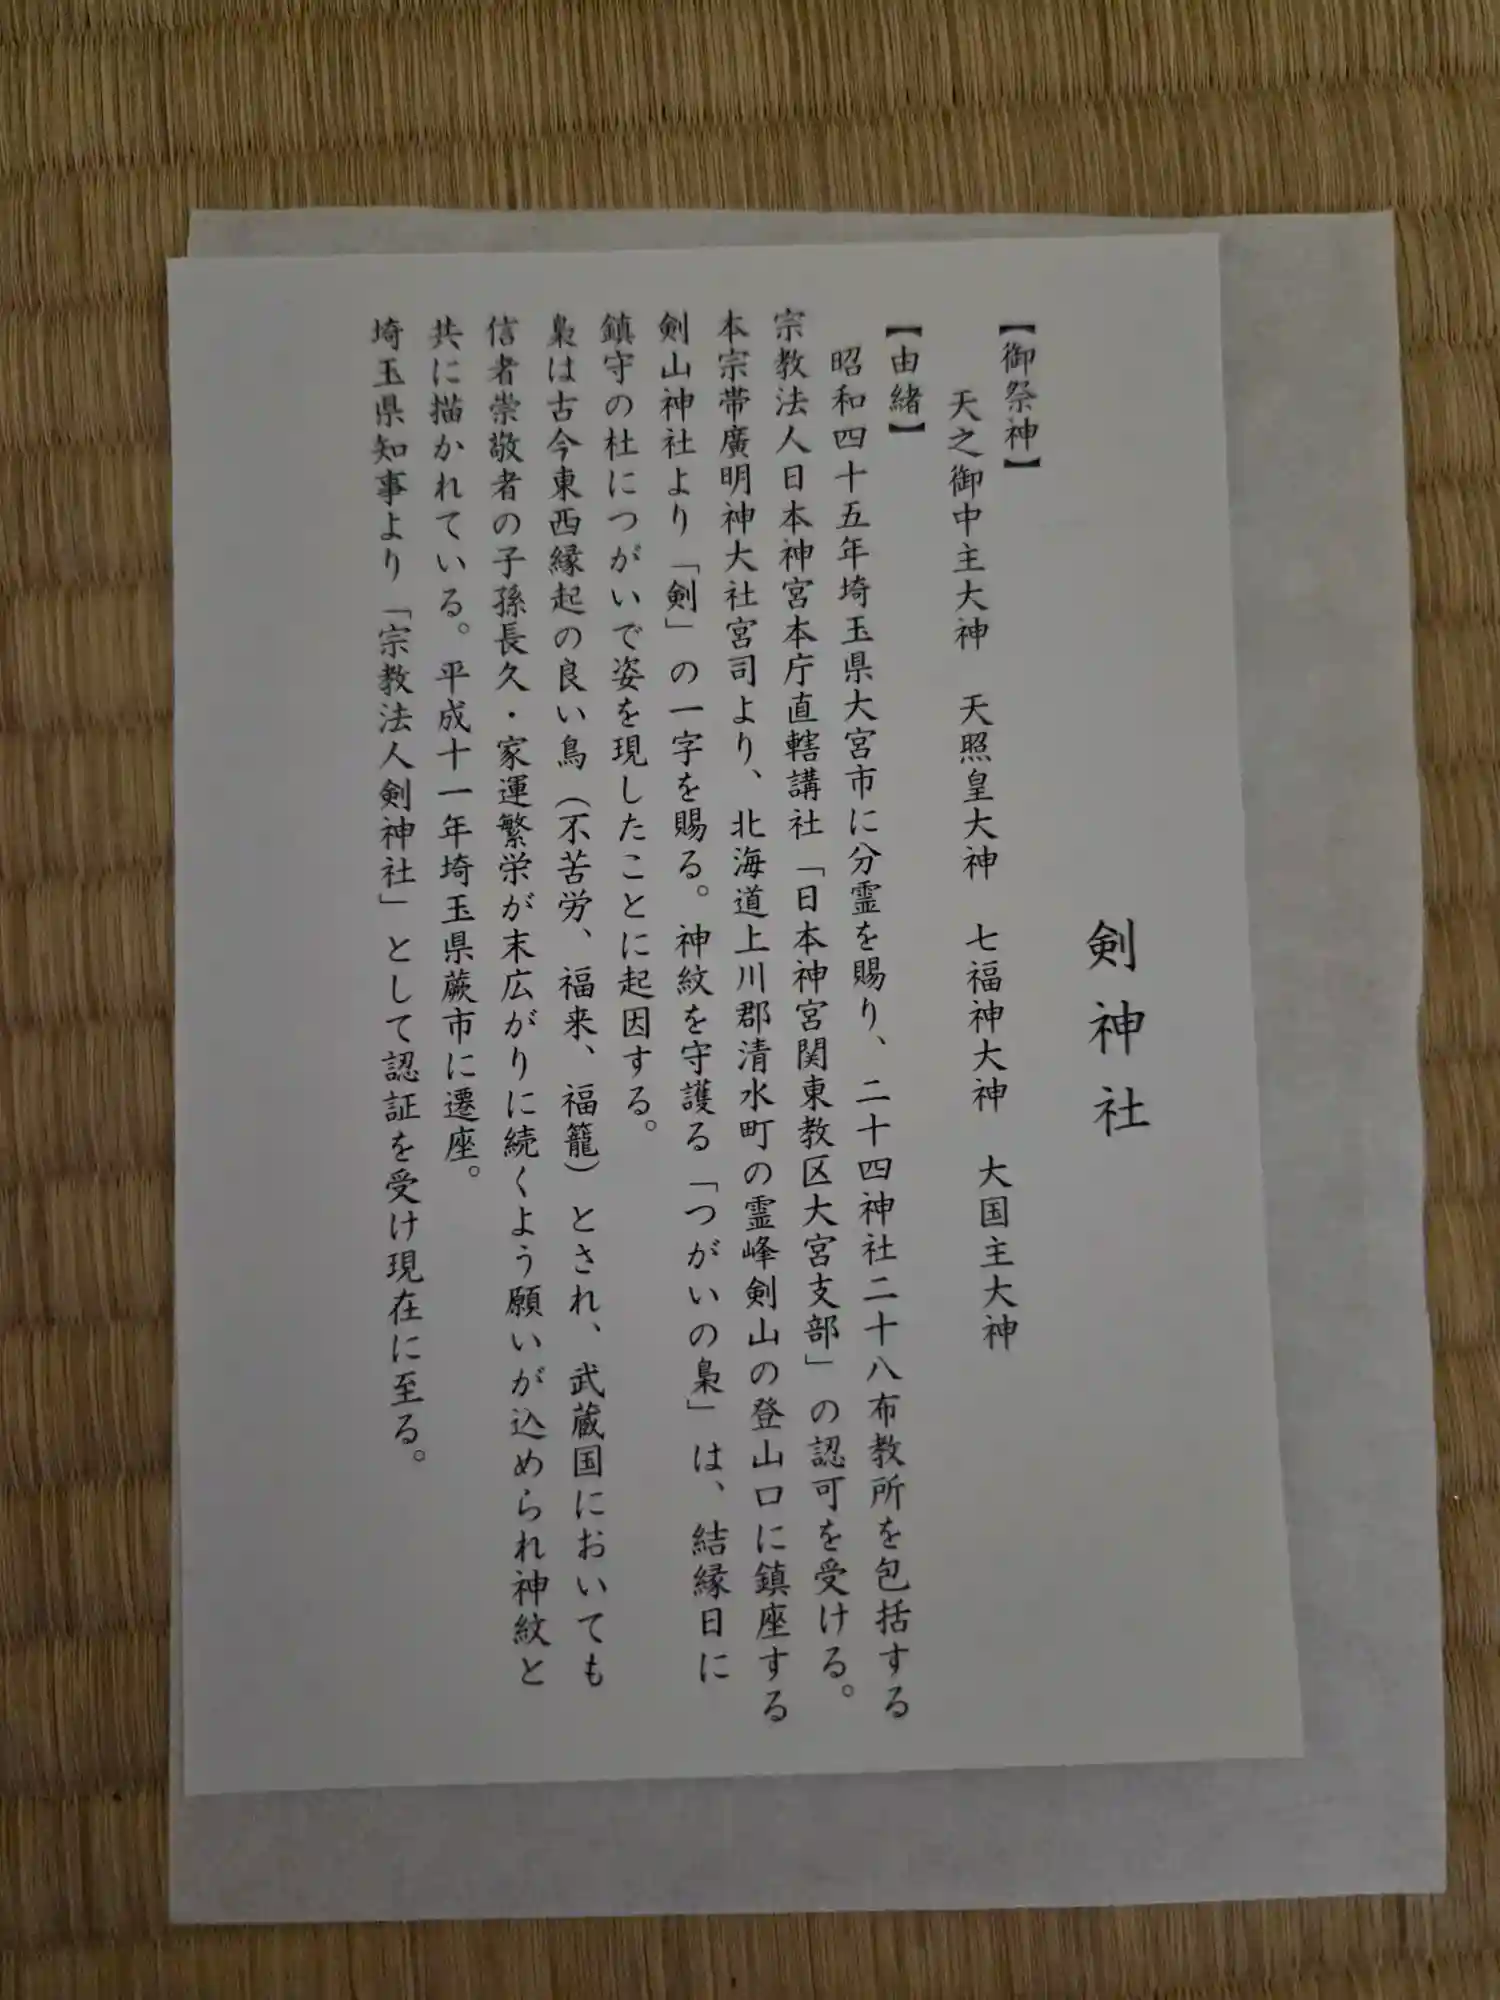 剣神社
【御祭神】
天之御中主大神　天照皇大神　七福神大神　大国主大神
【由緒】
昭和四十五年埼玉県大宮市に分霊を賜り、二十四神社二十八布教所を包括する
宗教法人日本神宮本庁直轄講社「日本神宮関東教区大宮支部」の認可を受ける。
本宗帯廣明神大社宮司より、北海道上川郡清水町の霊峰剣山の登山口に鎮座する
剣山神社より「剣」の一字を賜る。神紋を守護る「つがいの梟」は、結縁日に
鎮守の杜につがいで姿を現したことに起因する。
梟は古今東西縁起の良い鳥（不苦労、福来、福籠）とされ、武蔵国においても
信者崇敬者の子孫長久・家運繁栄が末広がりに続くよう願いが込められ神紋と
共に描かれている。平成十一年埼玉県蕨市に遷座。
埼玉県知事より「宗教法人剣神社」として認証を受け現在に至る。